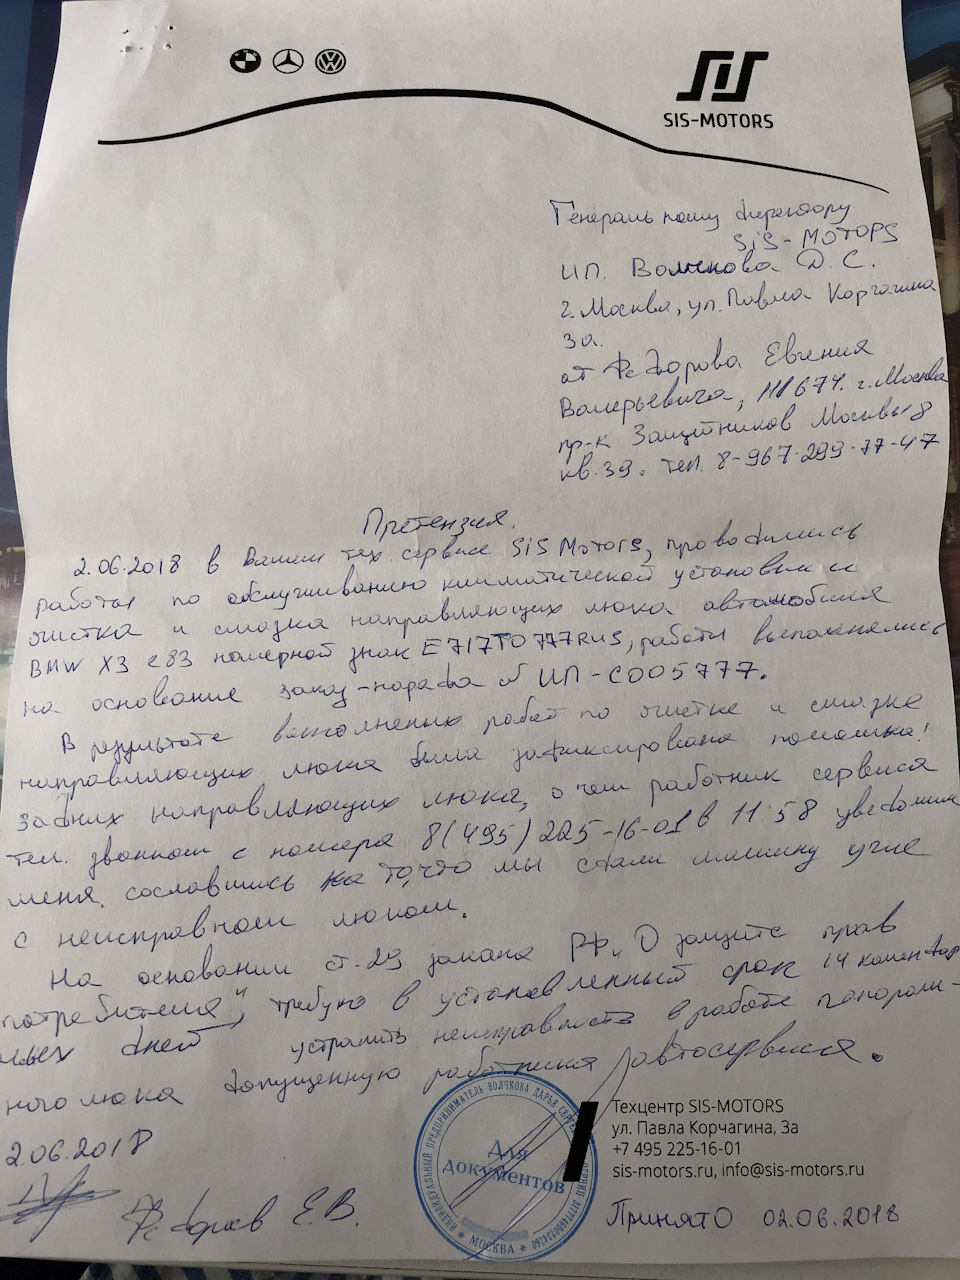 SIS-MOTORS
Генеральному директору
SiS-MOTOPS
ИП. Волчкова Д.С.
г. Москва, ул. Павла Корчагина
3а.
от Федорова Евгения
Валерьевича, 111674. г. Москва
пр-к Защитников Москвы 8
кв. 39. тел. 8-967-299-77-47
Претензия.
2.06.2018 в Вашем тех. сервисе SiS Motors, проводились
работы по обслуживанию климатической установки и
чистка и смазка направляющих люка автомобиля
BMW X3 e83 номерной знак E717TO777RUS, работы выполнялись
на основание заказ-наряда № ИП-С005777.
В результате выполнених работ по чистке и смазке
направляющих люка была зафиксирована поломка!
задних направляющих люка, о чем работник сервиса
тел. звонком с номера 8(495)225-16-01 в 11:58 уведомил
меня, сославшись на то, что мы сдали машину уже
с неисправном люком.
На основании ст. 29 закона РФ „О защите прав
потребителя", требую в установленный срок 14
дней устранить неисправность в работе панорам-
ного люка допущенную работника автосервиса.
2.06.2018
Федоров Е.В.
ИНДИВИДУАЛЬНЫЙ ПРЕДПРИНИМАТЕЛЬ ВОЛЧКОВА ДАРЬЯ
Для
документов
* МОСКВА *
Техцентр SIS-MOTORS
ул. Павла Корчагина, 3а
+7 495 225-16-01
sis-motors.ru, info@sis-motors.ru
Принято 02.06.2018